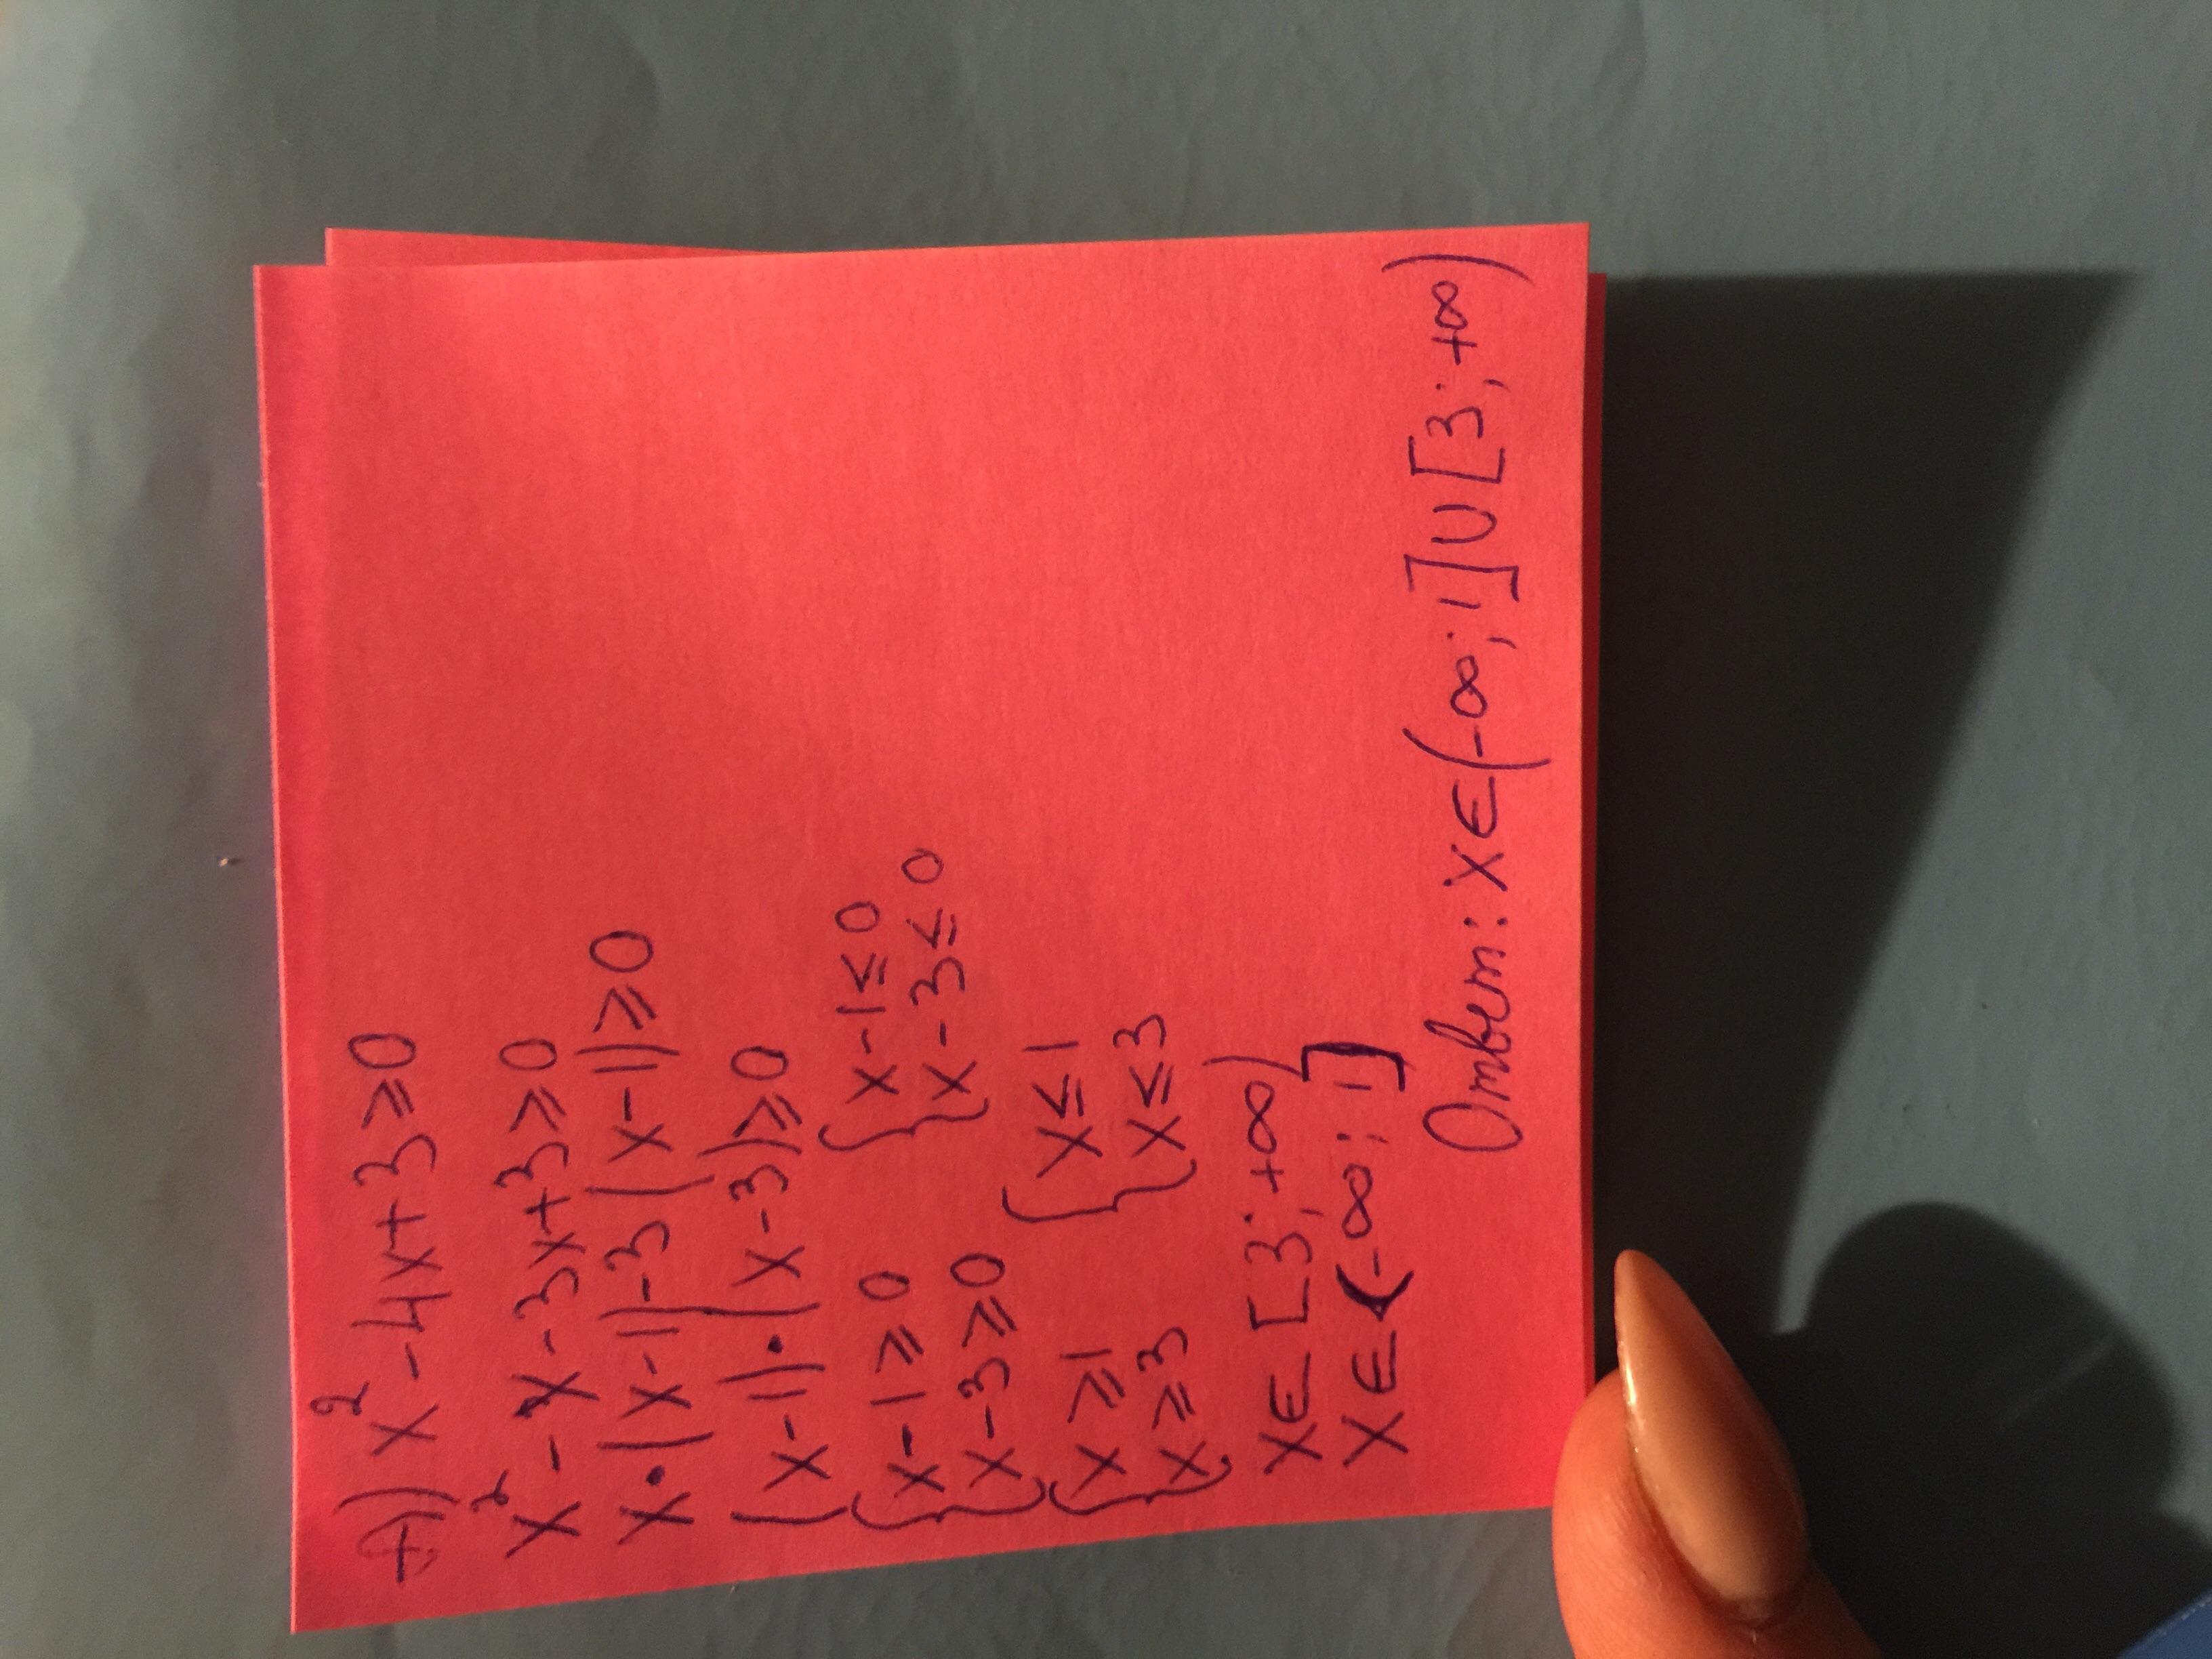 А) x² - 4x + 3 ≥ 0
x² - x - 3x + 3 ≥ 0
x·(x-1) - 3(x-1) ≥ 0
(x-1)·(x-3) ≥ 0
{x-1 ≥ 0 {x-1 ≤ 0
{x-3 ≥ 0 {x-3 ≤ 0
{x ≥ 1 {x ≤ 1
{x ≥ 3 {x ≤ 3
x ∈ [3; +∞)
x ∈ (-∞; 1]
Ответ: x ∈ (-∞; 1] ∪ [3; +∞)